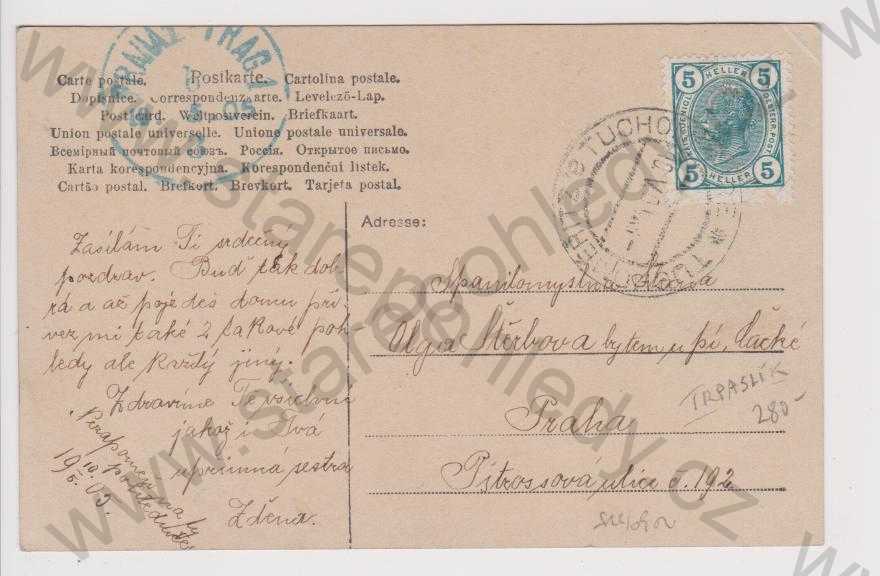 PRAHA 1 PRAG 1
Carte postale. Postkarte. Cartolina postale.
Dopisnice. Correspondenzkarte. Levelező-Lap.
Post card. Weltpostverein. Briefkaart.
Union postale universelle. Unione postale universale.
Всемірный почтовый союзъ. Россія. Открытое письмо.
Karta korespondencyjna. Korespondenční listek.
Cartão postal. Brefkort. Brevkort. Tarjeta postal.
5 HELLER 5
5 HELLER 5
TUCHO
Adresse:
Zasílám Ti srdečný
pozdrav. Buď tak dob-
rá a až pojedeš domu při-
vez mi také 2 takové poh-
ledy ale každý jiny.
Zdravíme Te všichni
jakož i Tvá
upřimná sestra
Zdena.
19 10/5 05.
Spanilomyslna Slečna
Olga Štěrbova bytem u pí. Čačké
Praha
Pštrossova ulice č. 192
TRPASLÍK
280-
www.starepohledy.cz